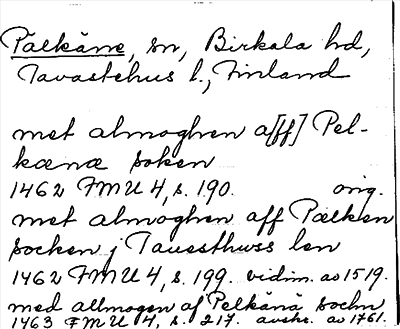 Pälkäne, sn, Birkala hd,
Tavastehus l., Finland
met almoghen a[ff] Pel-
kænæ soken
1462 FMU 4, s. 190. orig.
met almoghen aff Pælken
socken j Tauesthwss len
1462 FMU 4, s. 199. vidim. av 1519.
med allmogen af Pelkänä sochn
1463 FMU 4, s. 217. avskr. av 1761.